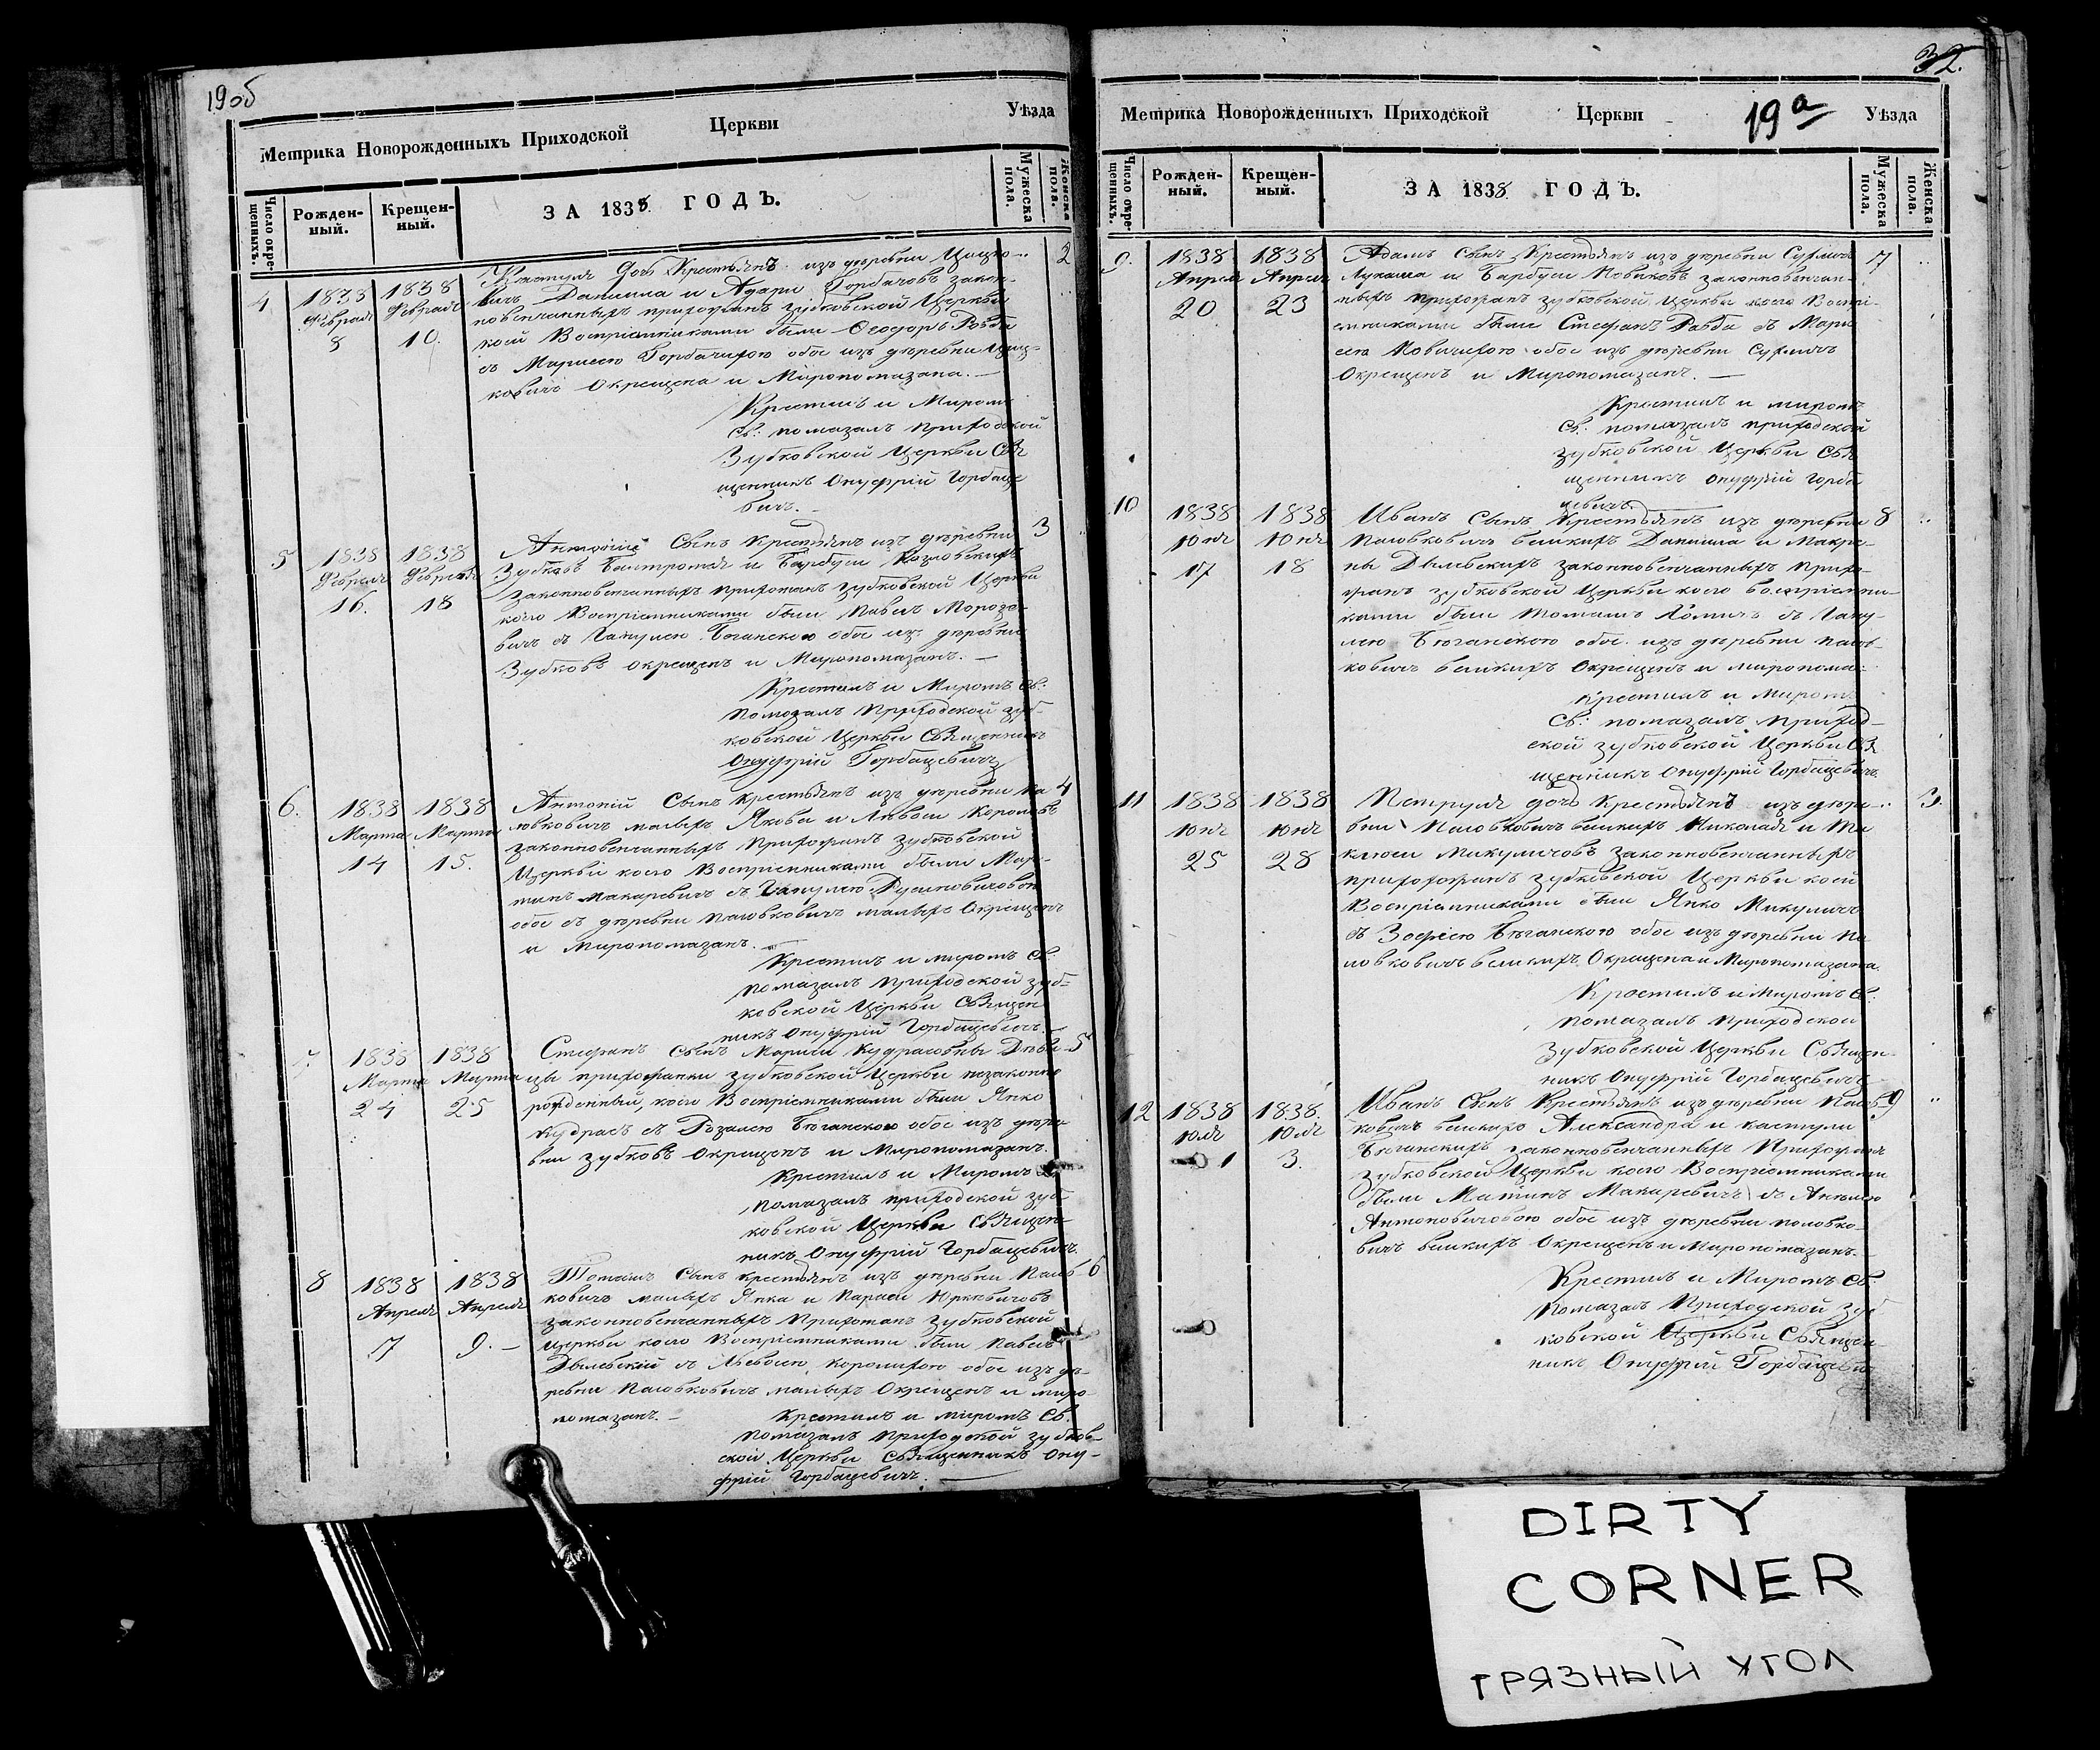 19об
Метрика Новорожденныхъ Приходской Церкви Уѣзда
Число окрещенныхъ.
Рожденный.
Крещенный.
ЗА 1838 ГОДЪ.
Мужеска пола.
Женска пола.
4 1838 Февраля 8
1838 Февраля 10.
дочь Крестьянъ изъ деревни
Даніила и Агари Горбачовъ закон-
новенчанныхъ прихожанъ зубковской Церкви
коей Воспріемниками были Феодоръ
съ Марысею Горбачихою обое изъ деревни Циц-
ковичъ Окрещена и Миропомазана. —
Крестилъ и Миромъ
Св: помазалъ Приходской
Зубковской Церкви Свя
щенникъ Онуфрій Горбаце
вичъ. —
2
5 1838 Февраля 16.
1838 Февраля 18
Антоній Сынъ Крестьянъ изъ деревни 3
Зубковъ и Барбуси Козловскихъ
законновенчанныхъ прихожанъ зубковской Церкви
коего Воспріемниками были Павелъ Морозо-
вичъ съ Ганулею Бѣганскою обое изъ деревни
Зубковъ окрещенъ и Миропомазанъ. —
Крестилъ и Миромъ Св:
помазалъ Приходской зуб-
ковской Церкви Священникъ
Онуфрій Горбацевичъ
6. 1838 Марта 14
1838 Марта 15.
Антоній Сынъ крестьянъ изъ деревни Па 4
ловковичъ малыхъ Якова и Королевъ
законновенчанныхъ Прихожанъ Зубковской
Церкви коего Воспріемниками были Мар-
тинъ Макаревичъ съ Ганулею
обое съ деревни Паловковичъ малыхъ Окрещенъ
и Миропомазанъ. —
Крестилъ и миромъ Св:
помазалъ приходской зуб-
ковской Церкви Священ
никъ Онуфрій Горбацевичъ.
7. 1838 Марта 24
1838 Марта 25
Стефанъ Сынъ Марыси Кудрасовны Дѣви 5
цы прихожанки зубковской Церкви незаконно
рожденный, коего Воспріемниками были Янко
Кудрасъ съ Розалею Бѣганскою обое изъ дере
вни Зубковъ Окрещенъ и Миропомазанъ.
Крестилъ и Миромъ Св
помазалъ приходской зуб
ковской Церкви Священ-
никъ Онуфрій Горбацевичъ
8 1838 Апреля 7
1838 Апреля 9. —
Томашъ Сынъ крестьянъ изъ деревни Палов 6
ковичъ малыхъ Янка и Параси Юркевичовъ
законновенчанныхъ Прихожанъ Зубковской
Церкви коего Воспріемниками были Павелъ
Дылевскій съ короликою обое изъ де
ревни Паловковичъ малыхъ Окрещенъ и миро-
помазанъ. — Крестилъ и миромъ Св:
помазалъ приходской зубков-
ской Церкви Священникъ Ону-
фрій Горбацевичъ. —
32.
Метрика Новорожденныхъ Приходской Церкви 19а Уѣзда
Число окрещенныхъ.
Рожденный.
Крещенный.
ЗА 1838 ГОДЪ.
Мужеска пола.
Женска пола.
9. 1838 Апреля 20
1838 Апреля 23
Адамъ Сынъ Крестьянъ изъ деревни 7
Лукаша и Барбуси Новиковъ законновенчан-
ныхъ прихожанъ зубковской Церкви коего Воспрі-
емниками были Стефанъ съ Мары
сею Новичихою обое изъ деревни
Окрещенъ и Миропомазанъ. —
Крестилъ и миромъ
Св: помазалъ приходской
зубковской Церкви Свя
щенникъ Онуфрій Горба
цевичъ.
10 1838 Юня 17
1838 Юня 18
Иванъ Сынъ Крестьянъ изъ деревни 8
Паловковичъ великихъ Даниила и Макре-
ны Дылевскихъ законновенчанныхъ прихо-
жанъ зубковской Церкви коего воспріемни-
ками были Томашъ съ Гану-
лею Бѣганскою обое изъ деревни Палов-
ковичъ великихъ Окрещенъ и миропома:
Крестилъ и Миромъ
Св: помазалъ приход-
ской зубковской Церкви Свя
щенникъ Онуфрій Горбацевичъ.
11 1838 Юня 25
1838 Юня 28
дочь Крестьянъ изъ дере- 3.
вни Паловковичъ великихъ Николая и Те
клюси Микуличовъ законновенчанныхъ
прихожанъ зубковской Церкви коей
Воспріемниками были Янко Микуличъ
съ Зофіею Бѣганскою обое изъ деревни Па
ловковичъ великихъ Окрещена и Миропомазана.
Крестилъ и Миромъ Св:
помазалъ Приходской
Зубковской Церкви Священ-
никъ Онуфрій Горбацевичъ
12 1838 Юля 1
1838. Юля 3.
Иванъ Сынъ Крестьянъ изъ деревни Палов- 9
ковичъ великихъ Александра и Кастули
Бѣганскихъ законновенчанныхъ Прихожанъ
Зубковской Церкви коего Воспріемниками
были Макаревичъ съ
Антоновичовою обое изъ деревни Паловко-
вичъ великихъ Окрещенъ и Миропомазанъ. —
Крестилъ и Миромъ Св:
помазалъ Приходской зуб
ковской Церкви Священ-
никъ Онуфрій Горбацевичъ
DIRTY
CORNER
ГРЯЗНЫЙ УГОЛ